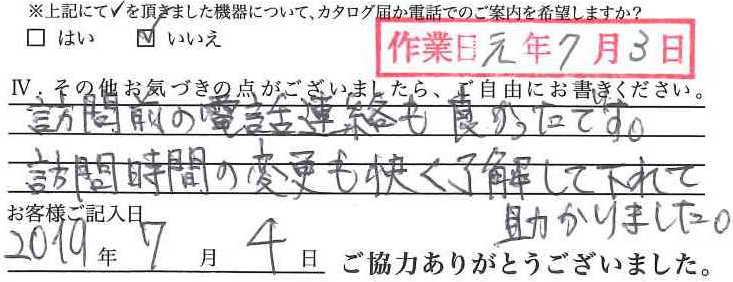 ※上記にて✓を頂きました機器について、カタログ届か電話でのご案内を希望しますか?
□ はい ☑ いいえ
作業日 元年7月3日
Ⅳ.その他お気づきの点がございましたら、ご自由にお書きください。
訪問前の電話連絡も良かったです。
訪問時間の変更も快く了解して下れて
助かりました。
お客様ご記入日
2019年 7月 4日 ご協力ありがとうございました。